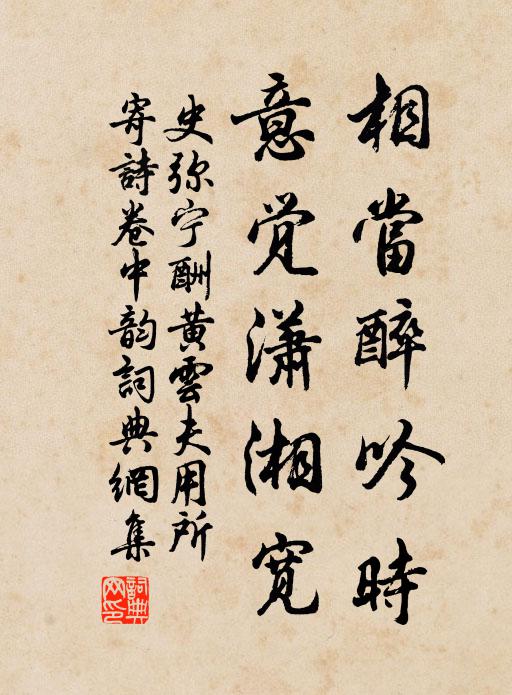 相當醉吟時
意覺瀟湘寬
史弥宁酬黄雲夫用所
寄詩卷中韵詞典網集
詞典網印